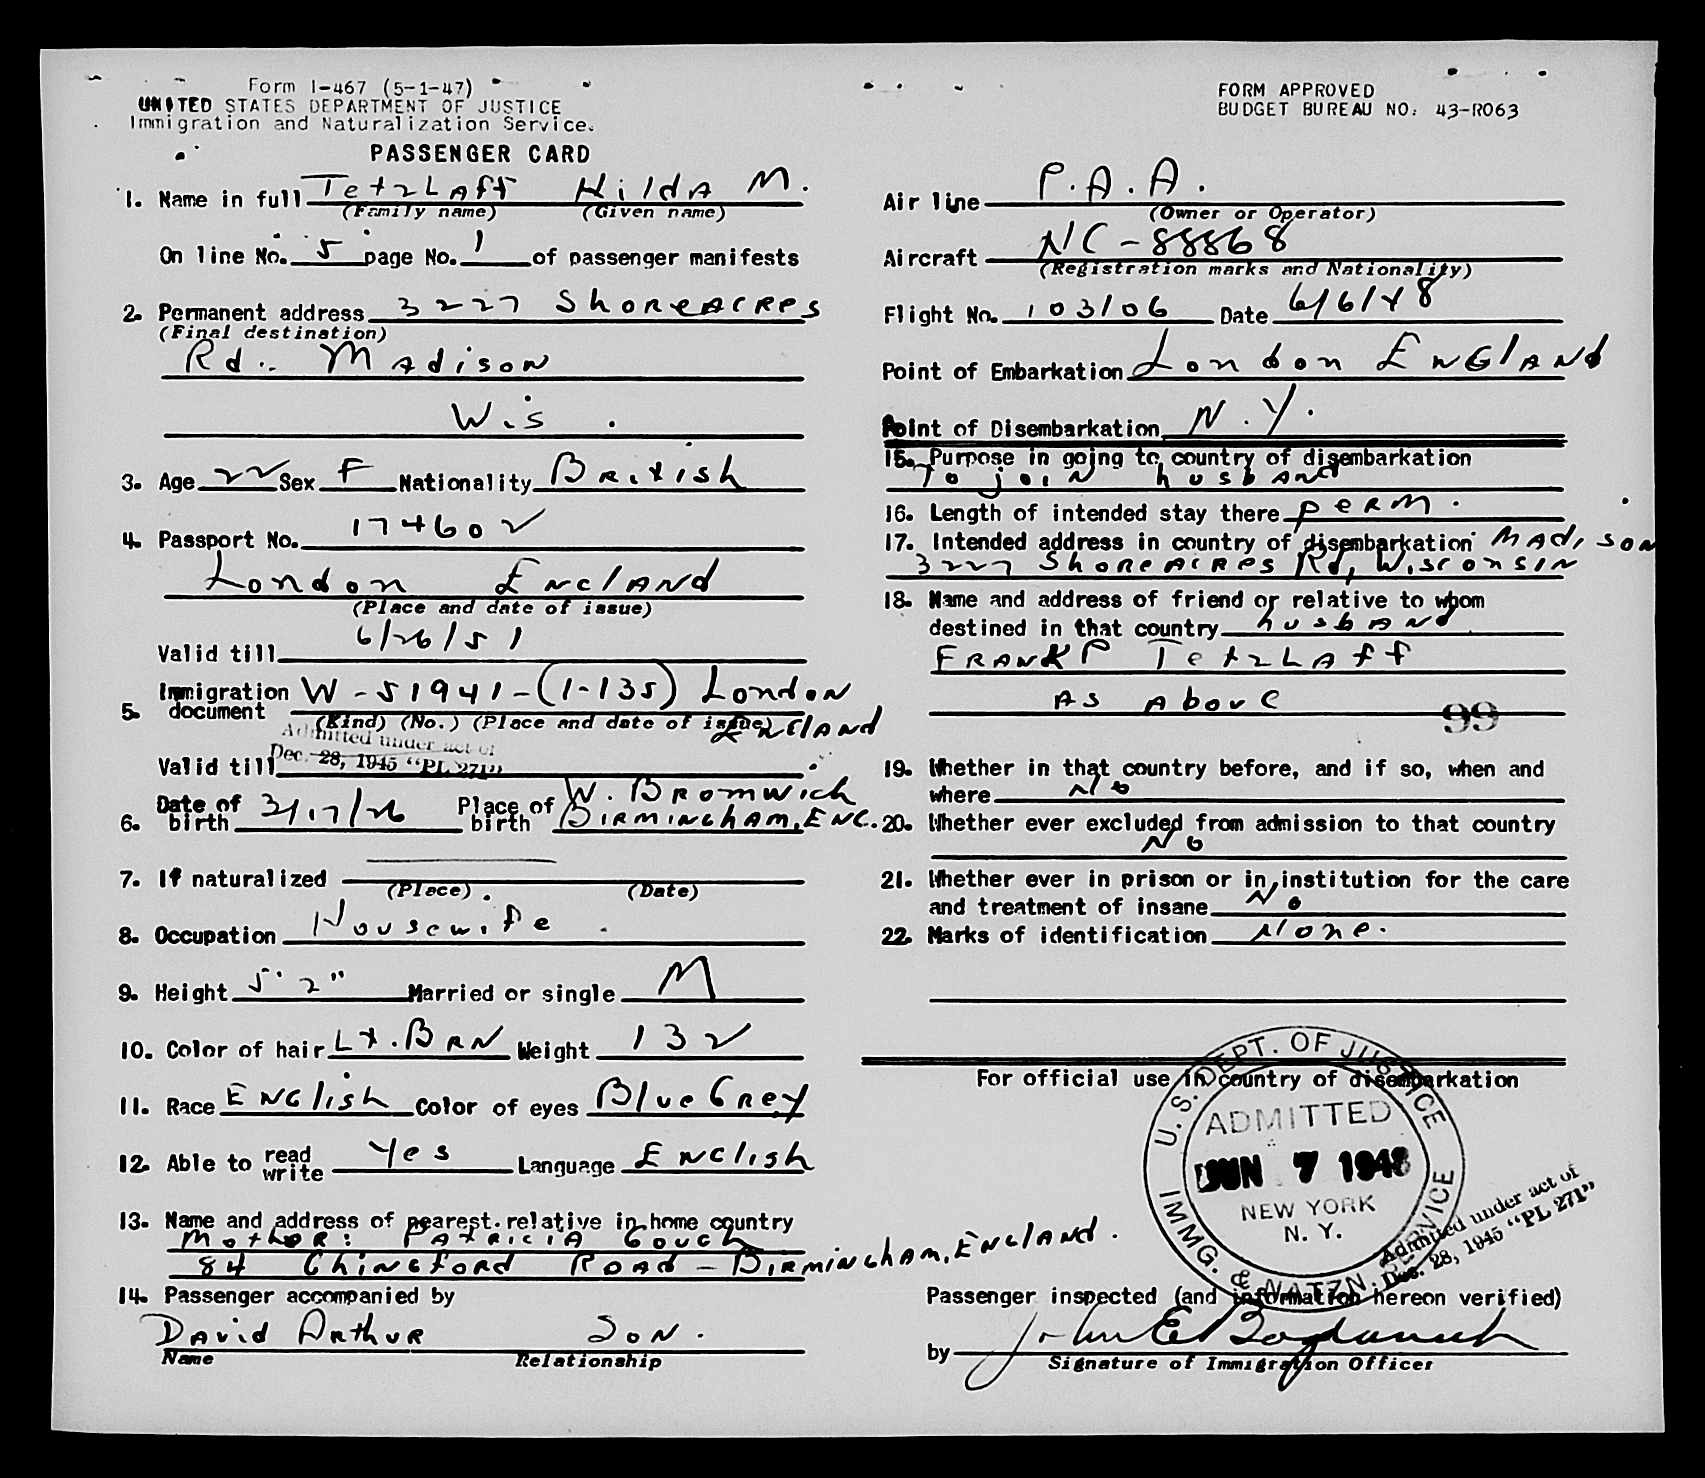 Form I-467 (5-1-47)
UNITED STATES DEPARTMENT OF JUSTICE
Immigration and Naturalization Service.
PASSENGER CARD
1. Name in full Tetzlaff Hilda M.
(Family name) (Given name)
On line No. 5 page No. 1 of passenger manifests
2. Permanent address 3227 Shoreacres
(Final destination)
Rd. Madison
Wis.
3. Age 22 Sex F Nationality British
4. Passport No. 174602
London England
(Place and date of issue)
Valid till 6/26/51
5. Immigration document W-51941-(1-135) London
England
(Kind) (No.) (Place and date of issue)
Admitted under act of
Dec. 28, 1945 "PL 271"
Valid till
6. Date of birth 3/17/26 Place of birth W. Bromwich
Birmingham, Eng.
7. If naturalized
(Place) (Date)
8. Occupation Housewife
9. Height 5' 2" Married or single M
10. Color of hair Lt. Brn Weight 132
11. Race English Color of eyes Blue Grey
12. Able to read write Yes Language English
13. Name and address of nearest relative in home country
Mother: Patricia Gough
84 Chingford Road - Birmingham, England.
14. Passenger accompanied by
David Arthur Son.
Name Relationship
FORM APPROVED
BUDGET BUREAU NO. 43-R063
Air line P.A.A.
(Owner or Operator)
Aircraft NC-88868
(Registration marks and Nationality)
Flight No. 103/06 Date 6/6/48
Point of Embarkation London England
Point of Disembarkation N.Y.
15. Purpose in going to country of disembarkation
To join husband
16. Length of intended stay there perm.
17. Intended address in country of disembarkation Madison
3227 Shoreacres Rd, Wisconsin
18. Name and address of friend or relative to whom
destined in that country husband
Frank P Tetzlaff
As Above
99
19. Whether in that country before, and if so, when and
where No
20. Whether ever excluded from admission to that country
No
21. Whether ever in prison or in institution for the care
and treatment of insane No
22. Marks of identification None.
For official use in country of disembarkation
U.S. DEPT. OF JUSTICE
ADMITTED
JUN 7 1948
NEW YORK
N. Y.
IMMG. & NATZN. SERVICE
Admitted under act of
Dec. 28, 1945 "PL 271"
Passenger inspected (and information hereon verified)
by John E
Signature of Immigration Officer